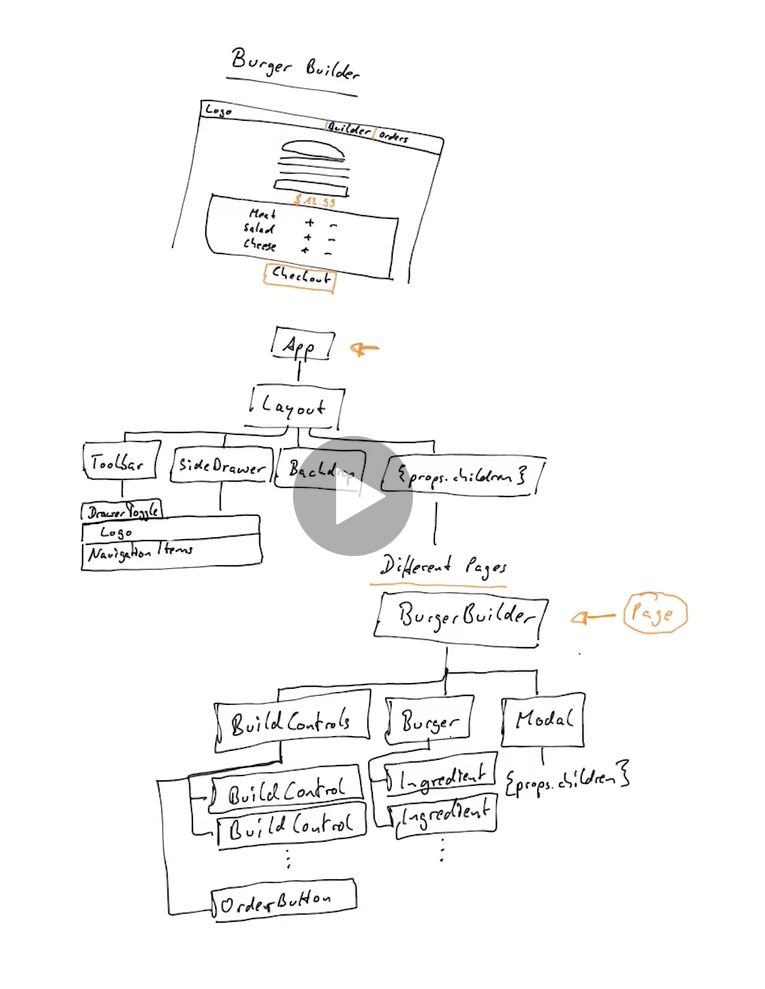 Burger Builder
Logo
Builder Orders
$12.99
Meat + -
Salad + -
Cheese + -
Checkout
App
Layout
Toolbar
SideDrawer
{props.children}
DrawerToggle
Logo
Navigation Items
Different Pages
BurgerBuilder
Page
BuildControls
Burger
Modal
BuildControl
Ingredient
{props.children}
BuildControl
Ingredient
OrderButton